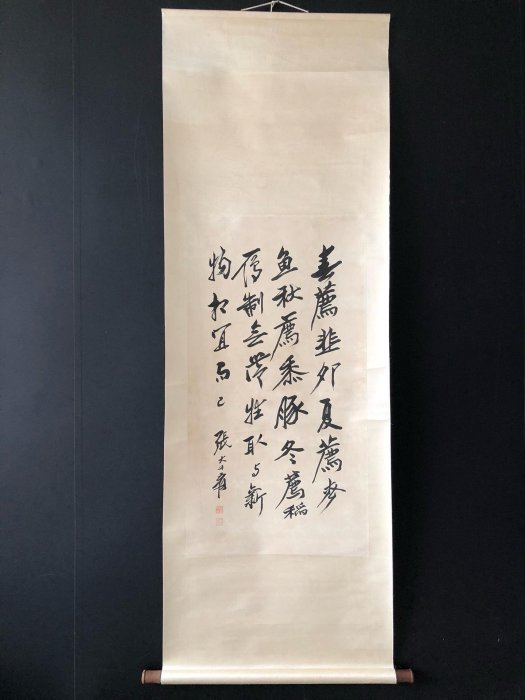 春薦韭卵夏薦麥
魚秋薦黍豚冬薦稻
雁制無常牲取与新
物相宜而已
張大千爰